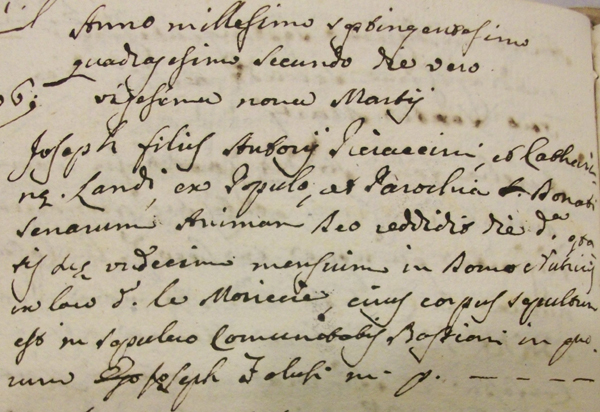 Anno millesimo septingentesimo
quadragesimo secundo die vero
06: vigesima nona Martij
Joseph filius Antonij Picaccini, et Catheri-
nę Landi, ex Populo, et Parochia S. Donati
senarum Animam Deo reddidit die d.a ęta-
tis suę undecim mensium in Domo Nutricis
in loco d.o le Moriccie, eius corpus sepultum
est in sepulcro Comunitatis Bastioni in quo-
rum Ego Joseph Folusi m. p. - - - -